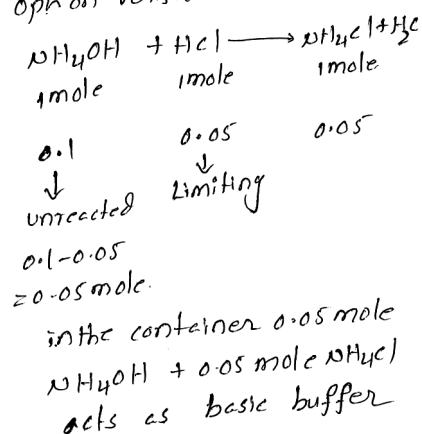 NH4OH + HCl → NH4Cl + H2
1mole 1mole 1mole
0.1 0.05 0.05
↓ ↓
unreacted Limiting
0.1-0.05
=0.05 mole.
in the container 0.05 mole
NH4OH + 0.05 mole NH4Cl
acts as basic buffer